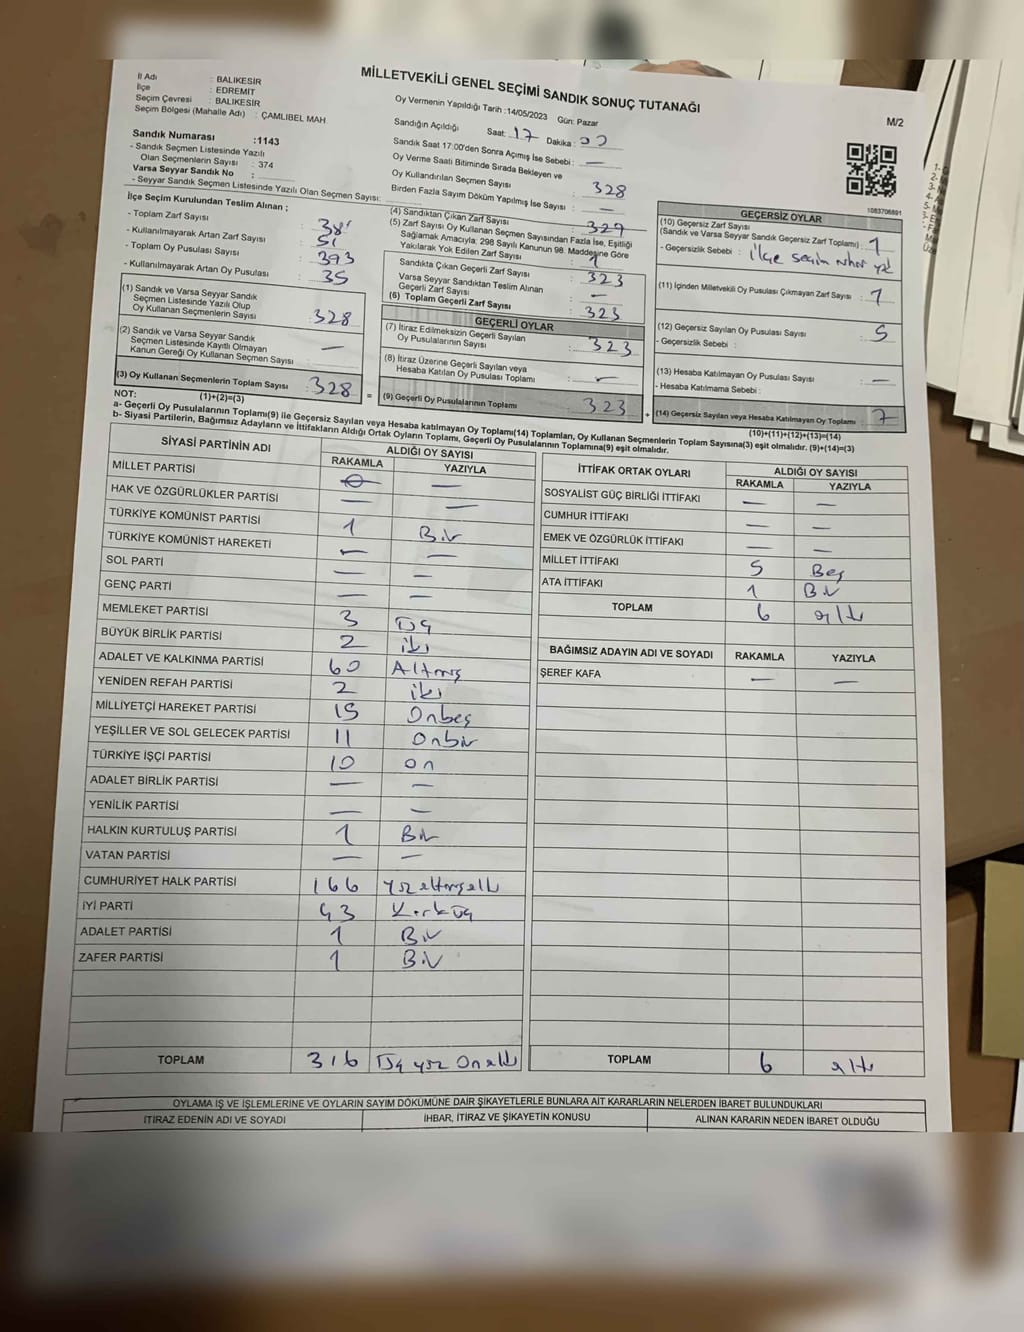 MİLLETVEKİLİ GENEL SEÇİMİ SANDIK SONUÇ TUTANAĞI
M/2
İl Adı : BALIKESİR
İlçe : EDREMİT
Seçim Çevresi : BALIKESİR
Seçim Bölgesi (Mahalle Adı) : ÇAMLIBEL MAH
Sandık Numarası :1143
- Sandık Seçmen Listesinde Yazılı
Olan Seçmenlerin Sayısı : 374
Varsa Seyyar Sandık No :
- Seyyar Sandık Seçmen Listesinde Yazılı Olan Seçmen Sayısı:
Oy Vermenin Yapıldığı Tarih :14/05/2023 Gün: Pazar
Sandığın Açıldığı Saat: 17 Dakika :
Sandık Saat 17:00'den Sonra Açımış İse Sebebi : —
Oy Verme Saati Bitiminde Sırada Bekleyen ve
Oy Kullandırılan Seçmen Sayısı : 328
Birden Fazla Sayım Döküm Yapılmış İse Sayısı : —
İlçe Seçim Kurulundan Teslim Alınan ;
- Toplam Zarf Sayısı :
- Kullanılmayarak Artan Zarf Sayısı : 51
- Toplam Oy Pusulası Sayısı : 393
- Kullanılmayarak Artan Oy Pusulası : 35
(1) Sandık ve Varsa Seyyar Sandık
Seçmen Listesinde Yazılı Olup
Oy Kullanan Seçmenlerin Sayısı : 328
(2) Sandık ve Varsa Seyyar Sandık
Seçmen Listesinde Kayıtlı Olmayan
Kanun Gereği Oy Kullanan Seçmen Sayısı : —
(3) Oy Kullanan Seçmenlerin Toplam Sayısı : 328
(4) Sandıktan Çıkan Zarf Sayısı : 329
(5) Zarf Sayısı Oy Kullanan Seçmen Sayısından Fazla İse, Eşitliği
Sağlamak Amacıyla; 298 Sayılı Kanunun 98. Maddesine Göre
Yakılarak Yok Edilen Zarf Sayısı : 1
Sandıkta Çıkan Geçerli Zarf Sayısı : 323
Varsa Seyyar Sandıktan Teslim Alınan
Geçerli Zarf Sayısı : —
(6) Toplam Geçerli Zarf Sayısı : 323
GEÇERLİ OYLAR
(7) İtiraz Edilmeksizin Geçerli Sayılan
Oy Pusulalarının Sayısı : 323
(8) İtiraz Üzerine Geçerli Sayılan veya
Hesaba Katılan Oy Pusulası Toplamı : —
= (9) Geçerli Oy Pusulalarının Toplamı : 323
1083706891
GEÇERSİZ OYLAR
(10) Geçersiz Zarf Sayısı
(Sandık ve Varsa Seyyar Sandık Geçersiz Zarf Toplamı) : 1
- Geçersizlik Sebebi : İlçe seçim
(11) İçinden Milletvekili Oy Pusulası Çıkmayan Zarf Sayısı : 1
(12) Geçersiz Sayılan Oy Pusulası Sayısı : 5
- Geçersizlik Sebebi :
(13) Hesaba Katılmayan Oy Pusulası Sayısı : —
- Hesaba Katılmama Sebebi :
+ (14) Geçersiz Sayılan veya Hesaba Katılmayan Oy Toplamı : 7
NOT: (1)+(2)=(3)
(10)+(11)+(12)+(13)=(14)
a- Geçerli Oy Pusulalarının Toplamı(9) ile Geçersiz Sayılan veya Hesaba katılmayan Oy Toplamı(14) Toplamları, Oy Kullanan Seçmenlerin Toplam Sayısına(3) eşit olmalıdır. (9)+(14)=(3)
b- Siyasi Partilerin, Bağımsız Adayların ve İttifakların Aldığı Ortak Oyların Toplamı, Geçerli Oy Pusulalarının Toplamına(9) eşit olmalıdır.
SİYASİ PARTİNİN ADI ALDIĞI OY SAYISI
RAKAMLA YAZIYLA
MİLLET PARTİSİ —
HAK VE ÖZGÜRLÜKLER PARTİSİ — —
TÜRKİYE KOMÜNİST PARTİSİ 1 Bir
TÜRKİYE KOMÜNİST HAREKETİ — —
SOL PARTİ — —
GENÇ PARTİ — —
MEMLEKET PARTİSİ 3 Üç
BÜYÜK BİRLİK PARTİSİ 2 iki
ADALET VE KALKINMA PARTİSİ 60 Altmış
YENİDEN REFAH PARTİSİ 2 iki
MİLLİYETÇİ HAREKET PARTİSİ 15 Onbeş
YEŞİLLER VE SOL GELECEK PARTİSİ 11 Onbir
TÜRKİYE İŞÇİ PARTİSİ 10 on
ADALET BİRLİK PARTİSİ — —
YENİLİK PARTİSİ — —
HALKIN KURTULUŞ PARTİSİ 1 Bir
VATAN PARTİSİ — —
CUMHURİYET HALK PARTİSİ 166 Yüzaltmışaltı
İYİ PARTİ 43 Kırküç
ADALET PARTİSİ 1 Bir
ZAFER PARTİSİ 1 Bir
TOPLAM 316 Üç yüz Onaltı
İTTİFAK ORTAK OYLARI ALDIĞI OY SAYISI
RAKAMLA YAZIYLA
SOSYALİST GÜÇ BİRLİĞİ İTTİFAKI — —
CUMHUR İTTİFAKI — —
EMEK VE ÖZGÜRLÜK İTTİFAKI — —
MİLLET İTTİFAKI 5 Beş
ATA İTTİFAKI 1 Bir
TOPLAM 6 altı
BAĞIMSIZ ADAYIN ADI VE SOYADI RAKAMLA YAZIYLA
ŞEREF KAFA — —
TOPLAM 6 altı
OYLAMA İŞ VE İŞLEMLERİNE VE OYLARIN SAYIM DÖKÜMÜNE DAİR ŞİKAYETLERLE BUNLARA AİT KARARLARIN NELERDEN İBARET BULUNDUKLARI
İTİRAZ EDENİN ADI VE SOYADI İHBAR, İTİRAZ VE ŞİKAYETİN KONUSU ALINAN KARARIN NEDEN İBARET OLDUĞU